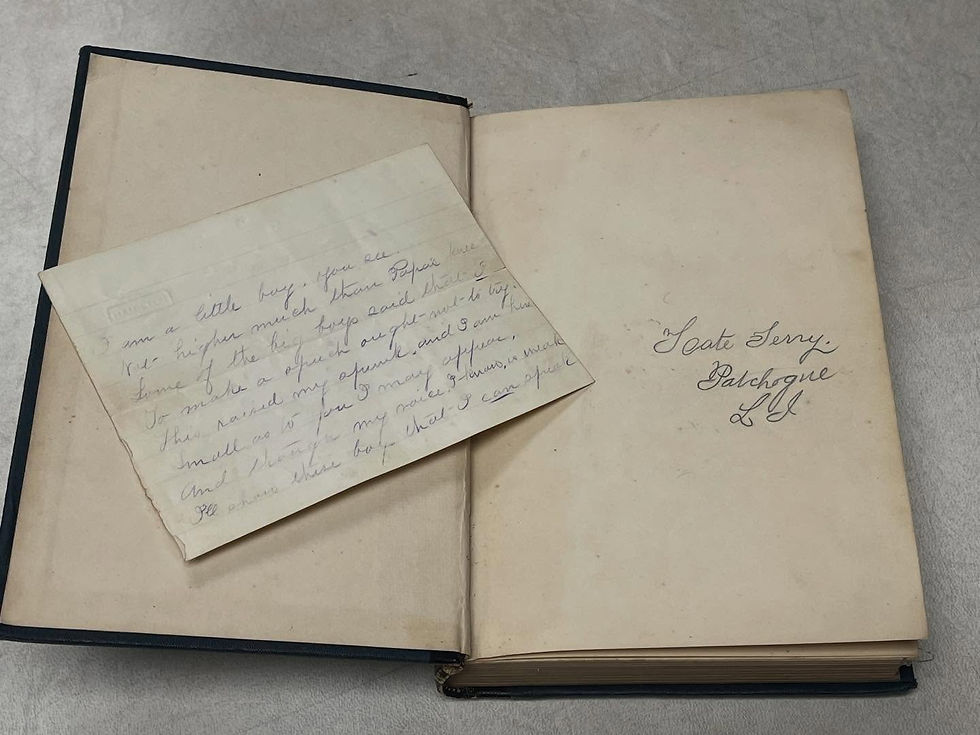 I am a little boy, you see
Not higher much than Papa's knee
Some of the big boys said that I
To make a speech ought not to try.
This raised my spunk, and I am here
Small as to you I may appear,
And though my voice, I know, is weak
I'll show these boys that I can speak
Kate Terry.
Patchogue
L I